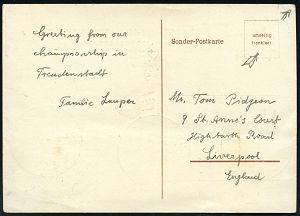 Greeting from our
championship in
Freudenstadt
Familie Lauper
Sonder-Postkarte
unnötig
frankiert
Mr. Tom Pidgeon
9 St. Anne's Court
Highbarth Road
Liverpool
England